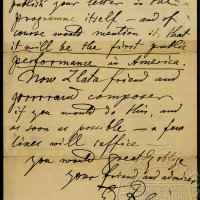 publish your letter in the
programme itself — and of
course would mention it, that
it will be the first public
performance in America.
Now friend and
composer
if you would do this, and
as soon as possible — a few
lines will suffice
you would greatly oblige
your friend and admirer